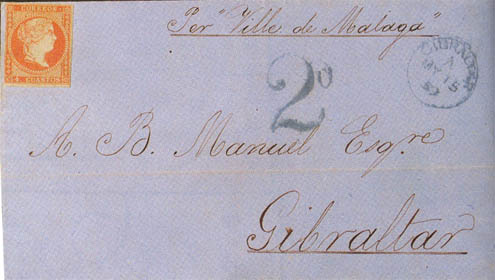 CORREOS
4 CUARTOS
Per "Ville de Malaga"
GIBRALTAR
A
MY 15
57
2º
A. B. Manuel Esqre
Gibraltar